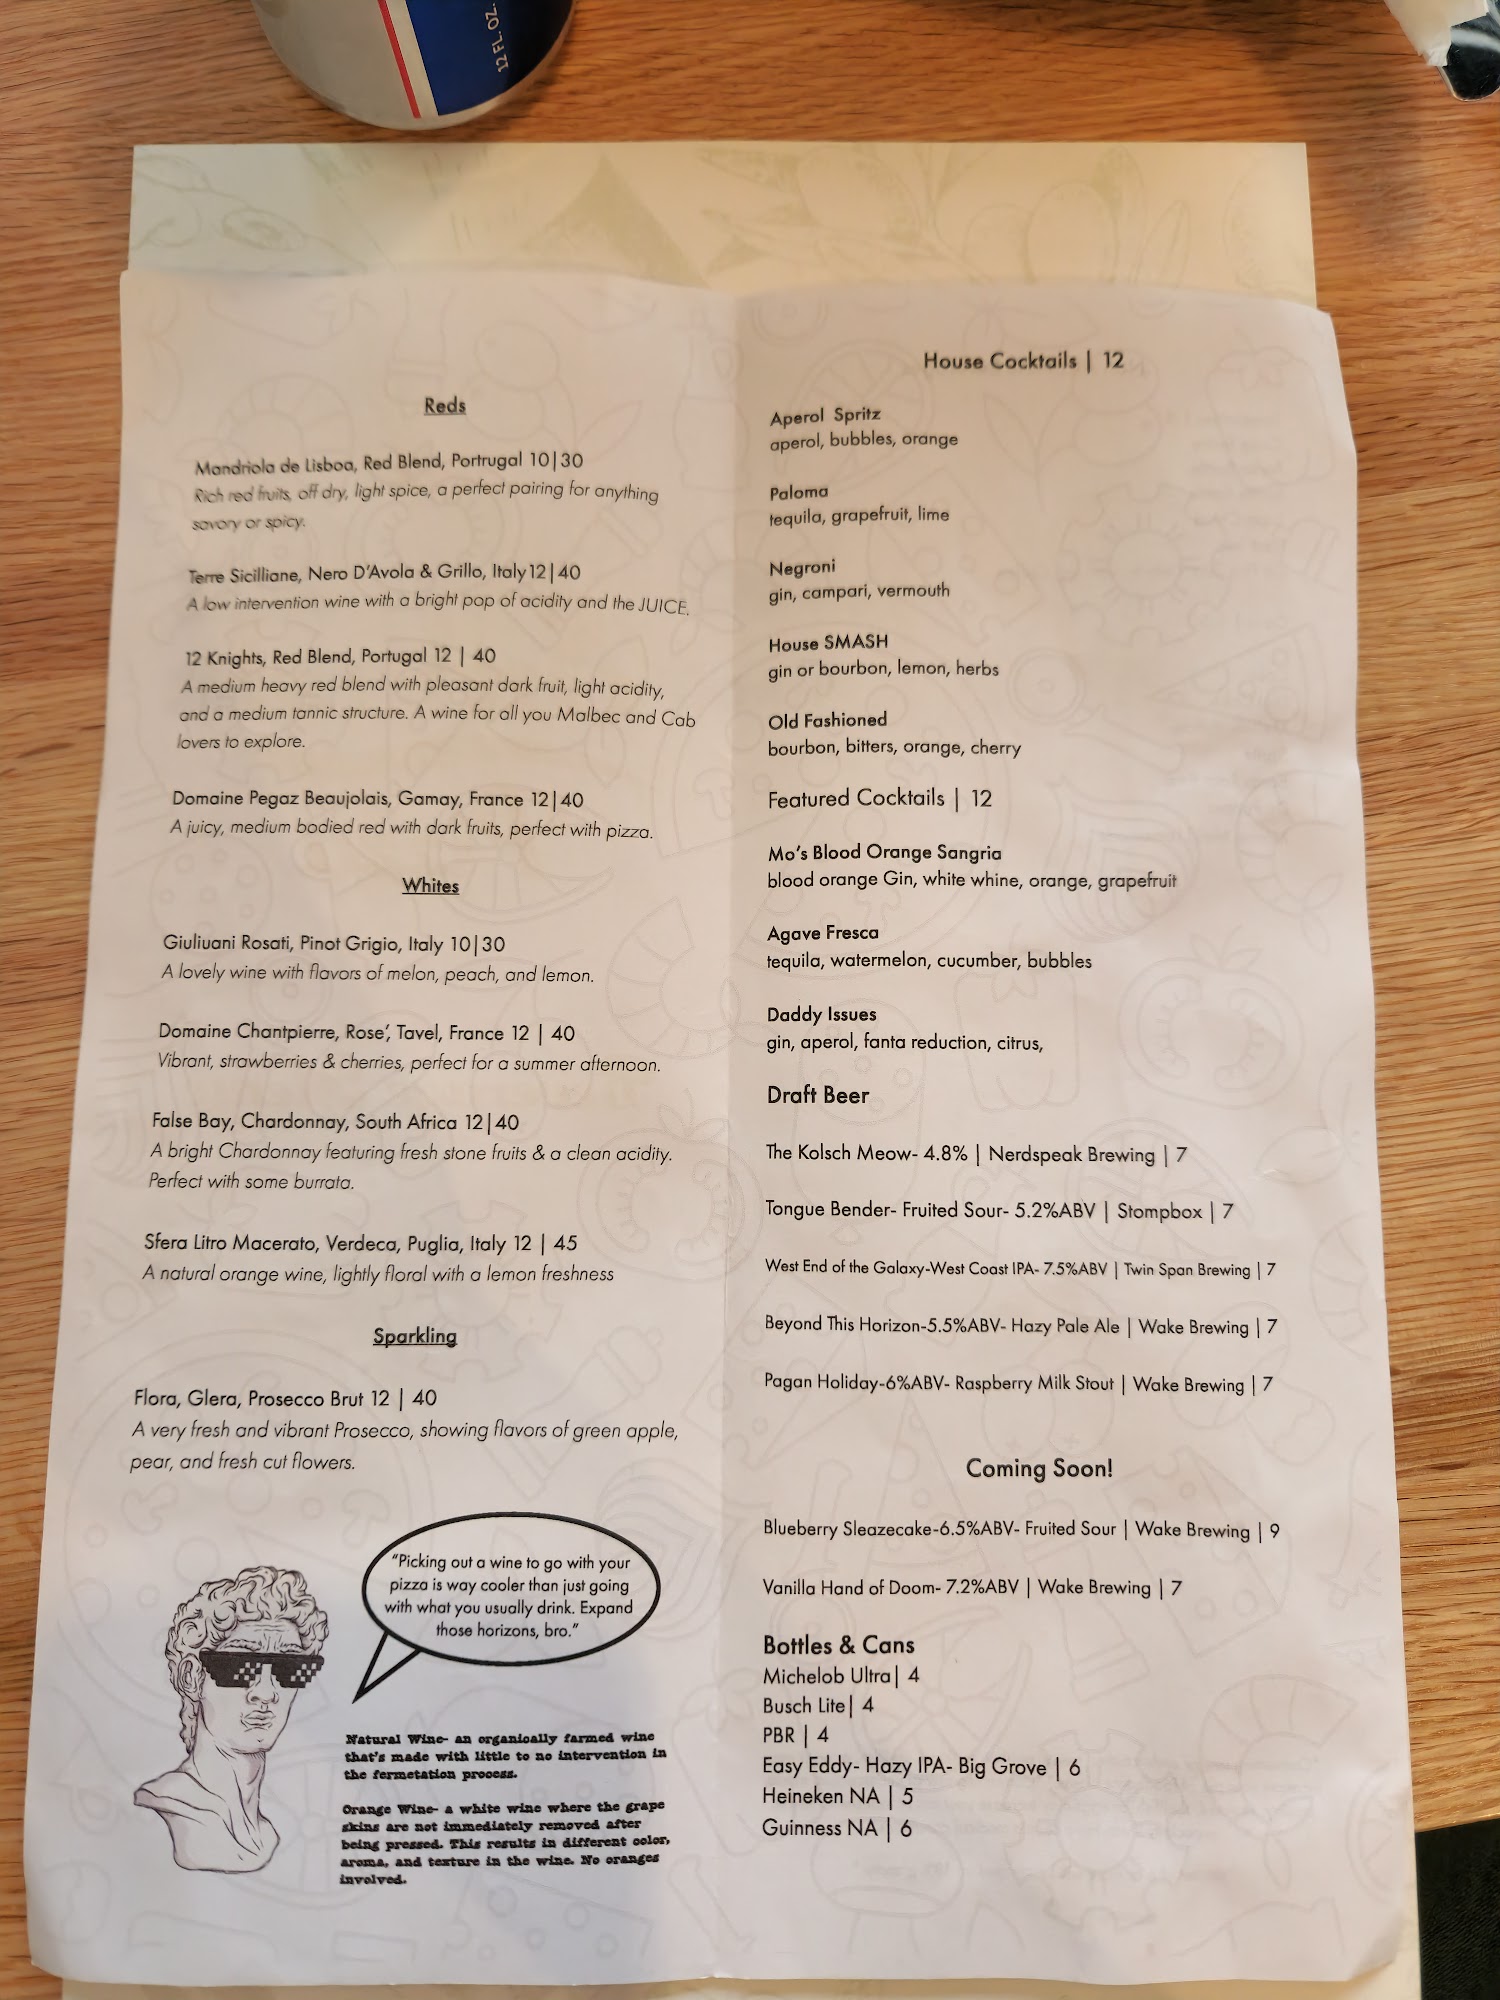 12 FL. OZ.
Reds
Mandriola de Lisboa, Red Blend, Portrugal 10|30
Rich red fruits, off dry, light spice, a perfect pairing for anything
savory or spicy.
Terre Sicilliane, Nero D'Avola & Grillo, Italy12|40
A low intervention wine with a bright pop of acidity and the JUICE.
12 Knights, Red Blend, Portugal 12 | 40
A medium heavy red blend with pleasant dark fruit, light acidity,
and a medium tannic structure. A wine for all you Malbec and Cab
lovers to explore.
Domaine Pegaz Beaujolais, Gamay, France 12|40
A juicy, medium bodied red with dark fruits, perfect with pizza.
Whites
Giuliuani Rosati, Pinot Grigio, Italy 10|30
A lovely wine with flavors of melon, peach, and lemon.
Domaine Chantpierre, Rose', Tavel, France 12 | 40
Vibrant, strawberries & cherries, perfect for a summer afternoon.
False Bay, Chardonnay, South Africa 12|40
A bright Chardonnay featuring fresh stone fruits & a clean acidity.
Perfect with some burrata.
Sfera Litro Macerato, Verdeca, Puglia, Italy 12 | 45
A natural orange wine, lightly floral with a lemon freshness
Sparkling
Flora, Glera, Prosecco Brut 12 | 40
A very fresh and vibrant Prosecco, showing flavors of green apple,
pear, and fresh cut flowers.
"Picking out a wine to go with your
pizza is way cooler than just going
with what you usually drink. Expand
those horizons, bro."
Natural Wine- an organically farmed wine
that's made with little to no intervention in
the fermetation process.
Orange Wine- a white wine where the grape
skins are not immediately removed after
being pressed. This results in different color,
aroma, and texture in the wine. No oranges
involved.
House Cocktails | 12
Aperol Spritz
aperol, bubbles, orange
Paloma
tequila, grapefruit, lime
Negroni
gin, campari, vermouth
House SMASH
gin or bourbon, lemon, herbs
Old Fashioned
bourbon, bitters, orange, cherry
Featured Cocktails | 12
Mo's Blood Orange Sangria
blood orange Gin, white whine, orange, grapefruit
Agave Fresca
tequila, watermelon, cucumber, bubbles
Daddy Issues
gin, aperol, fanta reduction, citrus,
Draft Beer
The Kolsch Meow- 4.8% | Nerdspeak Brewing | 7
Tongue Bender- Fruited Sour- 5.2%ABV | Stompbox | 7
West End of the Galaxy-West Coast IPA- 7.5%ABV | Twin Span Brewing | 7
Beyond This Horizon-5.5%ABV- Hazy Pale Ale | Wake Brewing | 7
Pagan Holiday-6%ABV- Raspberry Milk Stout | Wake Brewing | 7
Coming Soon!
Blueberry Sleazecake-6.5%ABV- Fruited Sour | Wake Brewing | 9
Vanilla Hand of Doom- 7.2%ABV | Wake Brewing | 7
Bottles & Cans
Michelob Ultra| 4
Busch Lite| 4
PBR | 4
Easy Eddy- Hazy IPA- Big Grove | 6
Heineken NA | 5
Guinness NA | 6